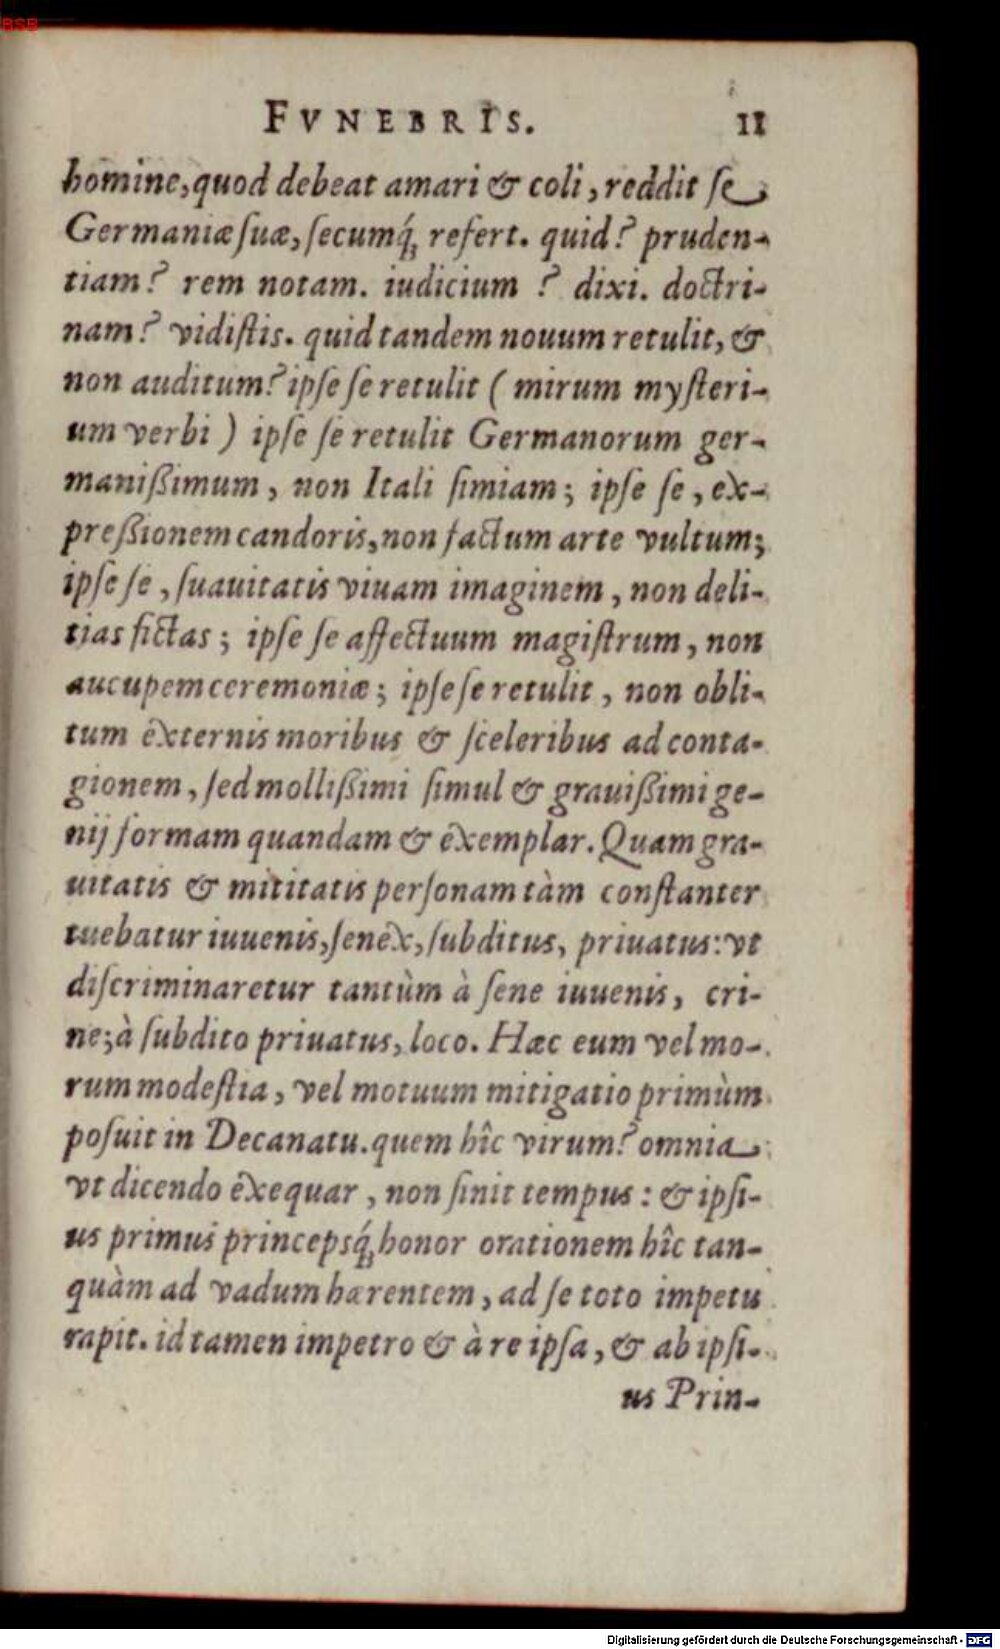 BSB
FVNEBRIS. 11
homine, quod debeat amari & coli, reddit ſe
Germaniæ ſuæ, ſecumq́; refert. quid? pruden-
tiam? rem notam. iudicium ? dixi. doctri-
nam? vidiſtis. quid tandem nouum retulit, &
non auditum? ipſe ſe retulit ( mirum myſteri-
um verbi ) ipſe ſe retulit Germanorum ger-
manißimum, non Itali ſimiam; ipſe ſe, ex-
preßionem candoris, non factum arte vultum;
ipſe ſe, ſuauitatis viuam imaginem, non deli-
tias fictas; ipſe ſe affectuum magiſtrum, non
aucupem ceremoniæ; ipſe ſe retulit, non obli-
tum externis moribus & ſceleribus ad conta-
gionem, ſed mollißimi ſimul & grauißimi ge-
nij formam quandam & exemplar. Quam gra-
uitatis & mititatis perſonam tàm conſtanter
tuebatur iuuenis, ſenex, ſubditus, priuatus: vt
diſcriminaretur tantùm à ſene iuuenis, cri-
ne; à ſubdito priuatus, loco. Hæc eum vel mo-
rum modeſtia, vel motuum mitigatio primùm
poſuit in Decanatu. quem hîc virum? omnia
vt dicendo exequar, non ſinit tempus: & ipſi-
us primus princepsq́; honor orationem hîc tan-
quàm ad vadum hærentem, ad ſe toto impetu
rapit. id tamen impetro & à re ipſa, & ab ipſi-
us Prin-
Digitalisierung gefördert durch die Deutsche Forschungsgemeinschaft - DFG